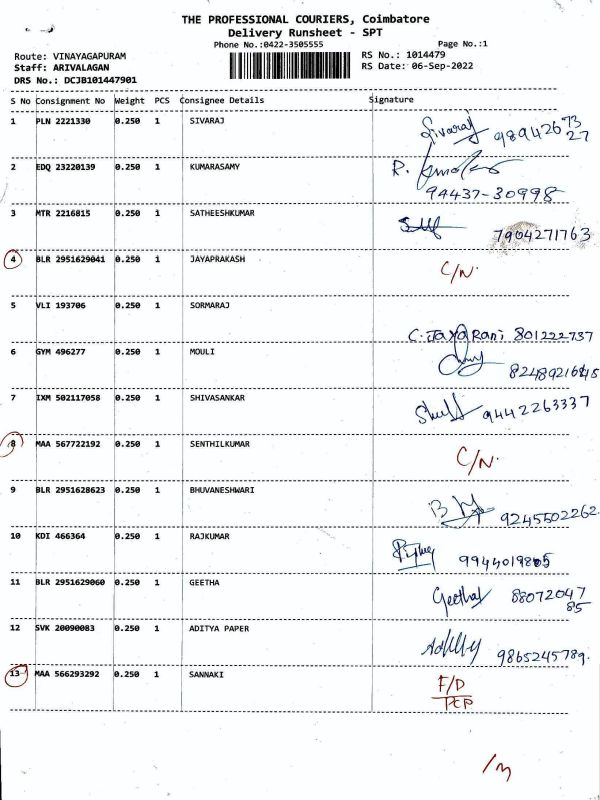 THE PROFESSIONAL COURIERS, Coimbatore
Delivery Runsheet - SPT
Phone No.:0422-3505555 Page No.:1
Route: VINAYAGAPURAM RS No.: 1014479
Staff: ARIVALAGAN RS Date: 06-Sep-2022
DRS No.: DCJB101447901
S No Consignment No Weight PCS Consignee Details Signature
1 PLN 2221330 0.250 1 SIVARAJ Sivaraj 98942673
27
2 EDQ 23220139 0.250 1 KUMARASAMY R.
94437-30998
3 MTR 2216815 0.250 1 SATHEESHKUMAR
7904271763
4 BLR 2951629041 0.250 1 JAYAPRAKASH C/N.
5 VLI 193706 0.250 1 SORMARAJ
C. Jaya Rani 801222737
6 GYM 496277 0.250 1 MOULI
7 IXM 502117058 0.250 1 SHIVASANKAR 9442263337
8 MAA 567722192 0.250 1 SENTHILKUMAR C/N.
9 BLR 2951628623 0.250 1 BHUVANESHWARI
9245502262
10 KDI 466364 0.250 1 RAJKUMAR
11 BLR 2951629060 0.250 1 GEETHA Geetha 88072047
85
12 SVK 20090083 0.250 1 ADITYA PAPER
9865245789.
13 MAA 566293292 0.250 1 SANNAKI F/D
PCP